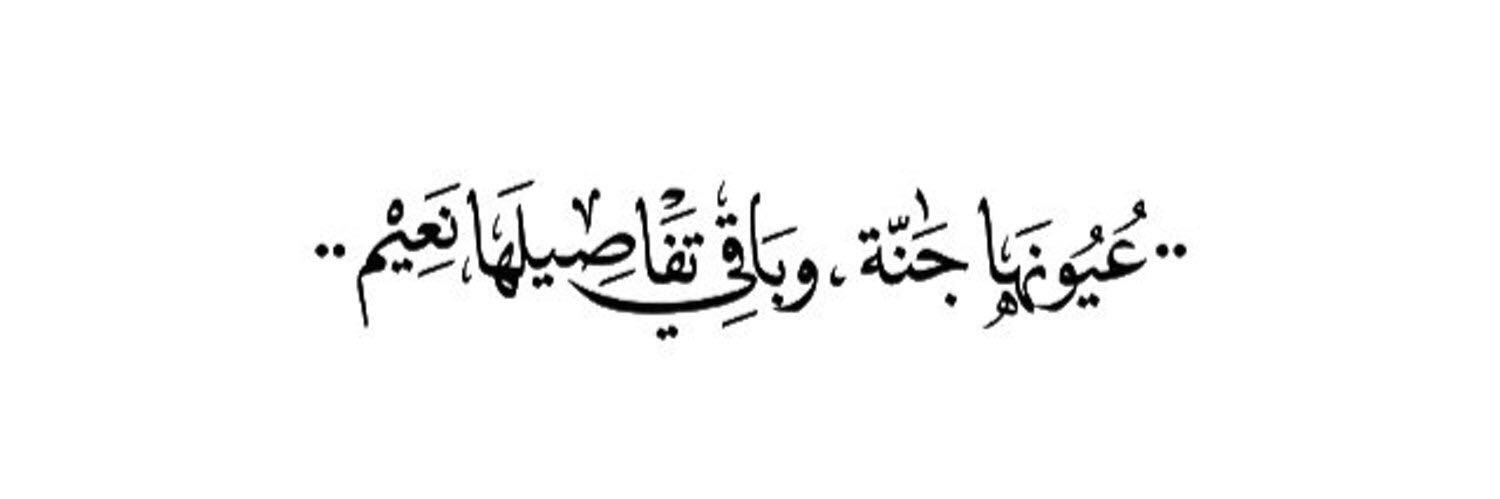 ..عُيُونهَا جَنّة ، وبَاقِي تفَاصِيلَهَا نَعِيْم..